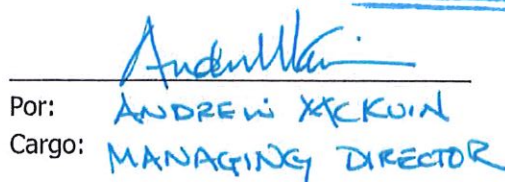 Por: ANDREW
Cargo: MANAGING DIRECTOR